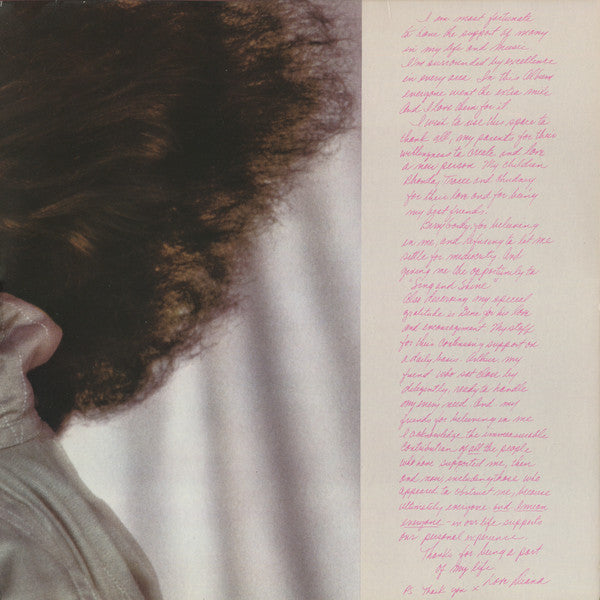 I am most fortunate
to have the support of many
in my life and music.
I'm surrounded by excellence
in every area. In this Album
everyone went the extra mile
And I love them for it.
I wish to use this space to
thank all, my parents for their
willingness to create and love
a new person. My children
Rhonda, Tracee and Chudney
for their love and for being
my best friends!
Berry Gordy, for believing
in me, and refusing to let me
settle for mediocrity. And
giving me the opportunity to
"Sing and Shine"
Also deserving my special
gratitude is Gene for his love
and encouragement. My staff
for their continuing support on
a daily basis. my
friend who sat close by
diligently, ready to handle
my every need. And my
friends for believing in me
I acknowledge the immeasurable
contribution of all the people
who have supported me, then
and now including those who
appeared to obstruct me, because
ultimately everyone and I mean
everyone - in our life supports
our personal experience.
Thanks for being a part
of my life.
Ps. Thank you x Love Diana